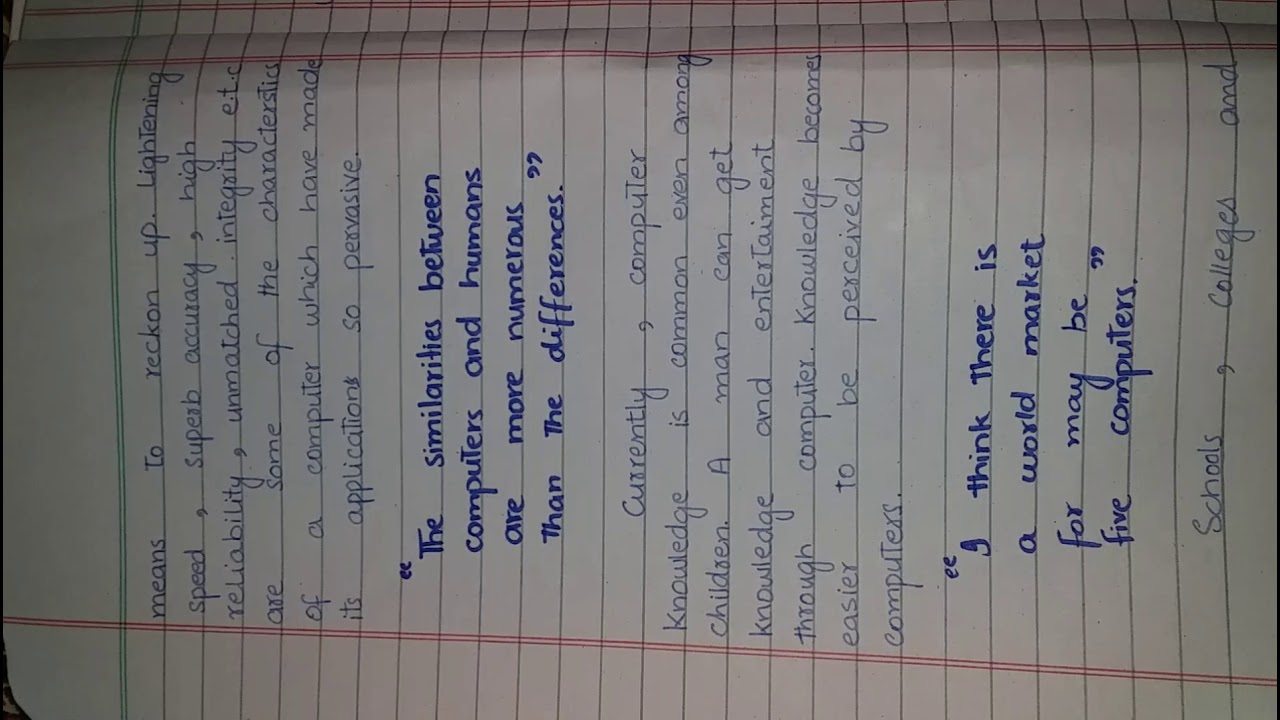 means to reckon up. Lightening
speed, superb accuracy, high
reliability, unmatched integrity e.t.c
are some of the characterstics
of a computer which have made
its applications so pervasive.
"The similarities between
computers and humans
are more numerous
than the differences."
Currently, computer
knowledge is common even among
children. A man can get
knowledge and entertaiment
through computer. Knowledge becomes
easier to be perceived by
computers.
"I think there is
a world market
for may be
five computers."
Schools, colleges and